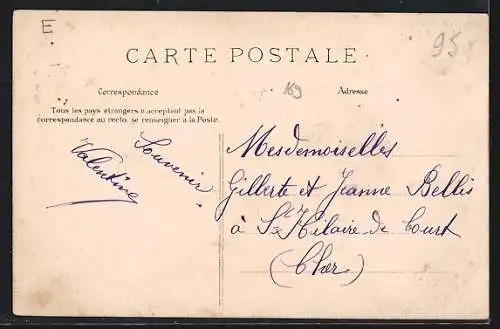 E
95
CARTE POSTALE
169
Correspondance
Adresse
Tous les pays étrangers n'acceptent pas la
correspondance au recto, se renseigner à la Poste.
Souvenir
Valentine
Mesdemoiselles
Gillerte et Jeanne Bellis
à St Hilaire de Court
(Cher)